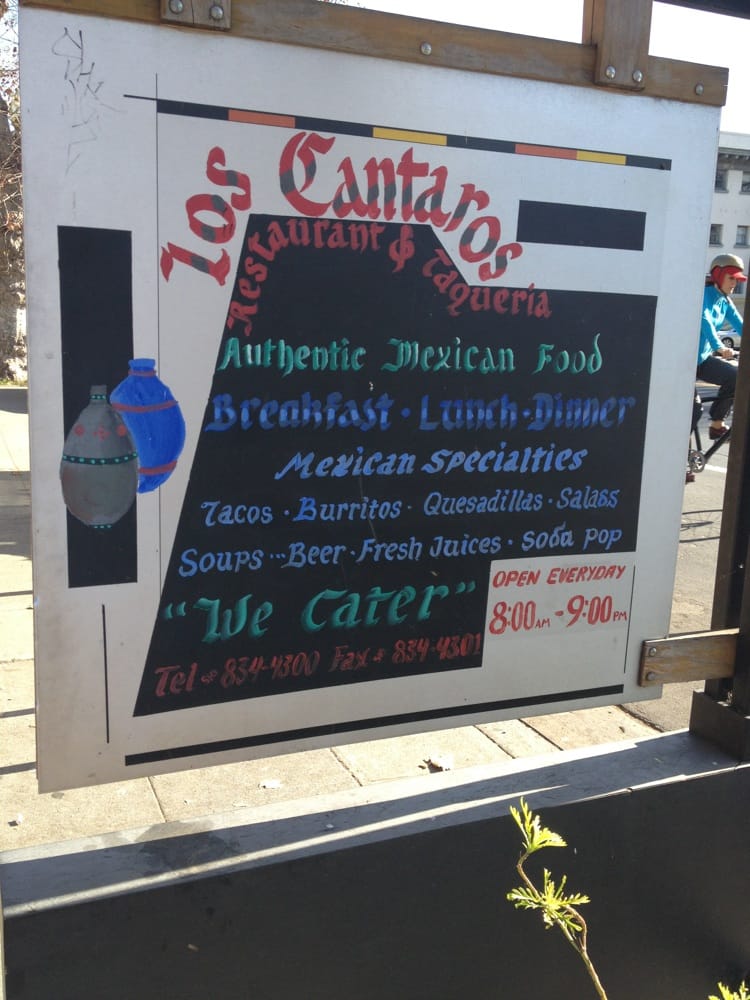 Los Cantaros
Restaurant & Taqueria
Authentic Mexican Food
Breakfast · Lunch · Dinner
Mexican Specialties
Tacos · Burritos · Quesadillas · Salads
Soups ··· Beer · Fresh Juices · Soda pop
"We Cater"
OPEN EVERYDAY
8:00 AM - 9:00 PM
Tel # 834-4300 Fax # 834-4301